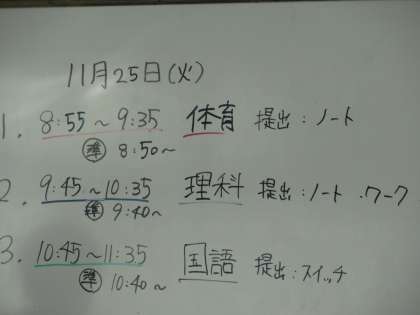 11月25日(火)
1. 8:55～9:35 体育 提出:ノート
準 8:50～
2. 9:45～10:35 理科 提出:ノート ・ワーク
準 9:40～
3. 10:45～11:35 国語 提出:スイッチ
準 10:40～